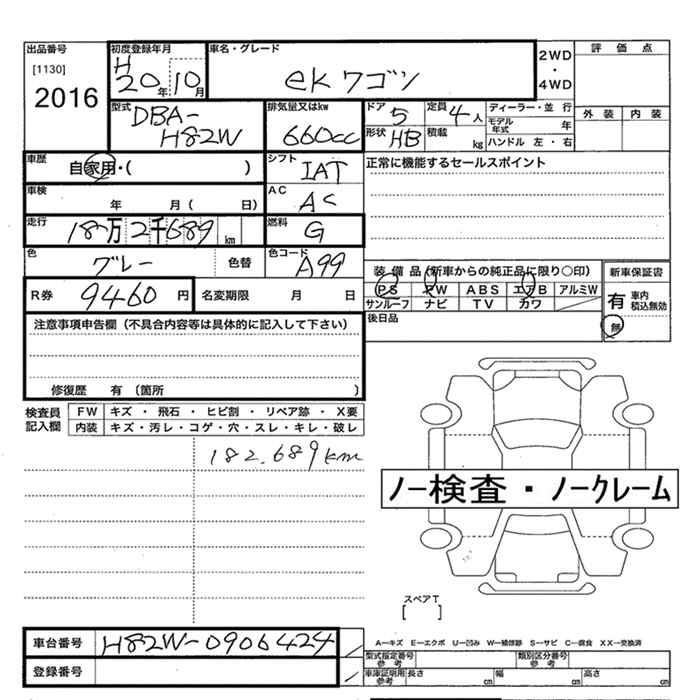 出品番号
[1130]
2016
初度登録年月
H
20年 10月
車名・グレード
ek ワゴン
2WD
・
4WD
評 価 点
外 装 内 装
型式
DBA-
H82W
排気量又はkw
660cc
ドア 5
定員 4人
形状 HB
積載 kg
ディーラー・並 行
モデル年式 年
ハンドル 左・右
車歴
自家用・( )
シフト
IAT
正常に機能するセールスポイント
車検
年 月( 日)
AC
AC
走行
18万2千689km
燃料
G
色
グレー
色替
色コード
A99
装 備 品(新車からの純正品に限り○印)
PS PW ABS エアB アルミW
サンルーフ ナビ TV カワ
新車保証書
有
車内
積込無効
無
R券 9460円
名変期限 月 日
後日品
注意事項申告欄(不具合内容等は具体的に記入して下さい)
修復歴 有 〔箇所 〕
検査員
記入欄
FW キズ ・ 飛石 ・ ヒビ割 ・ リペア跡 ・ X要
内装 キズ・汚レ・コゲ・穴・スレ・キレ・破レ
182.689km
ノー検査・ノークレーム
スペアT
[ ]
車台番号
H82W-0906424
登録番号
A―キズ E―エクボ U―凹み W―補修跡 S―サビ C―腐食 XX―交換済
型式指定番号
参考
類別区分番号
参考
車庫証明用
参考
長さ cm 幅 cm 高さ cm